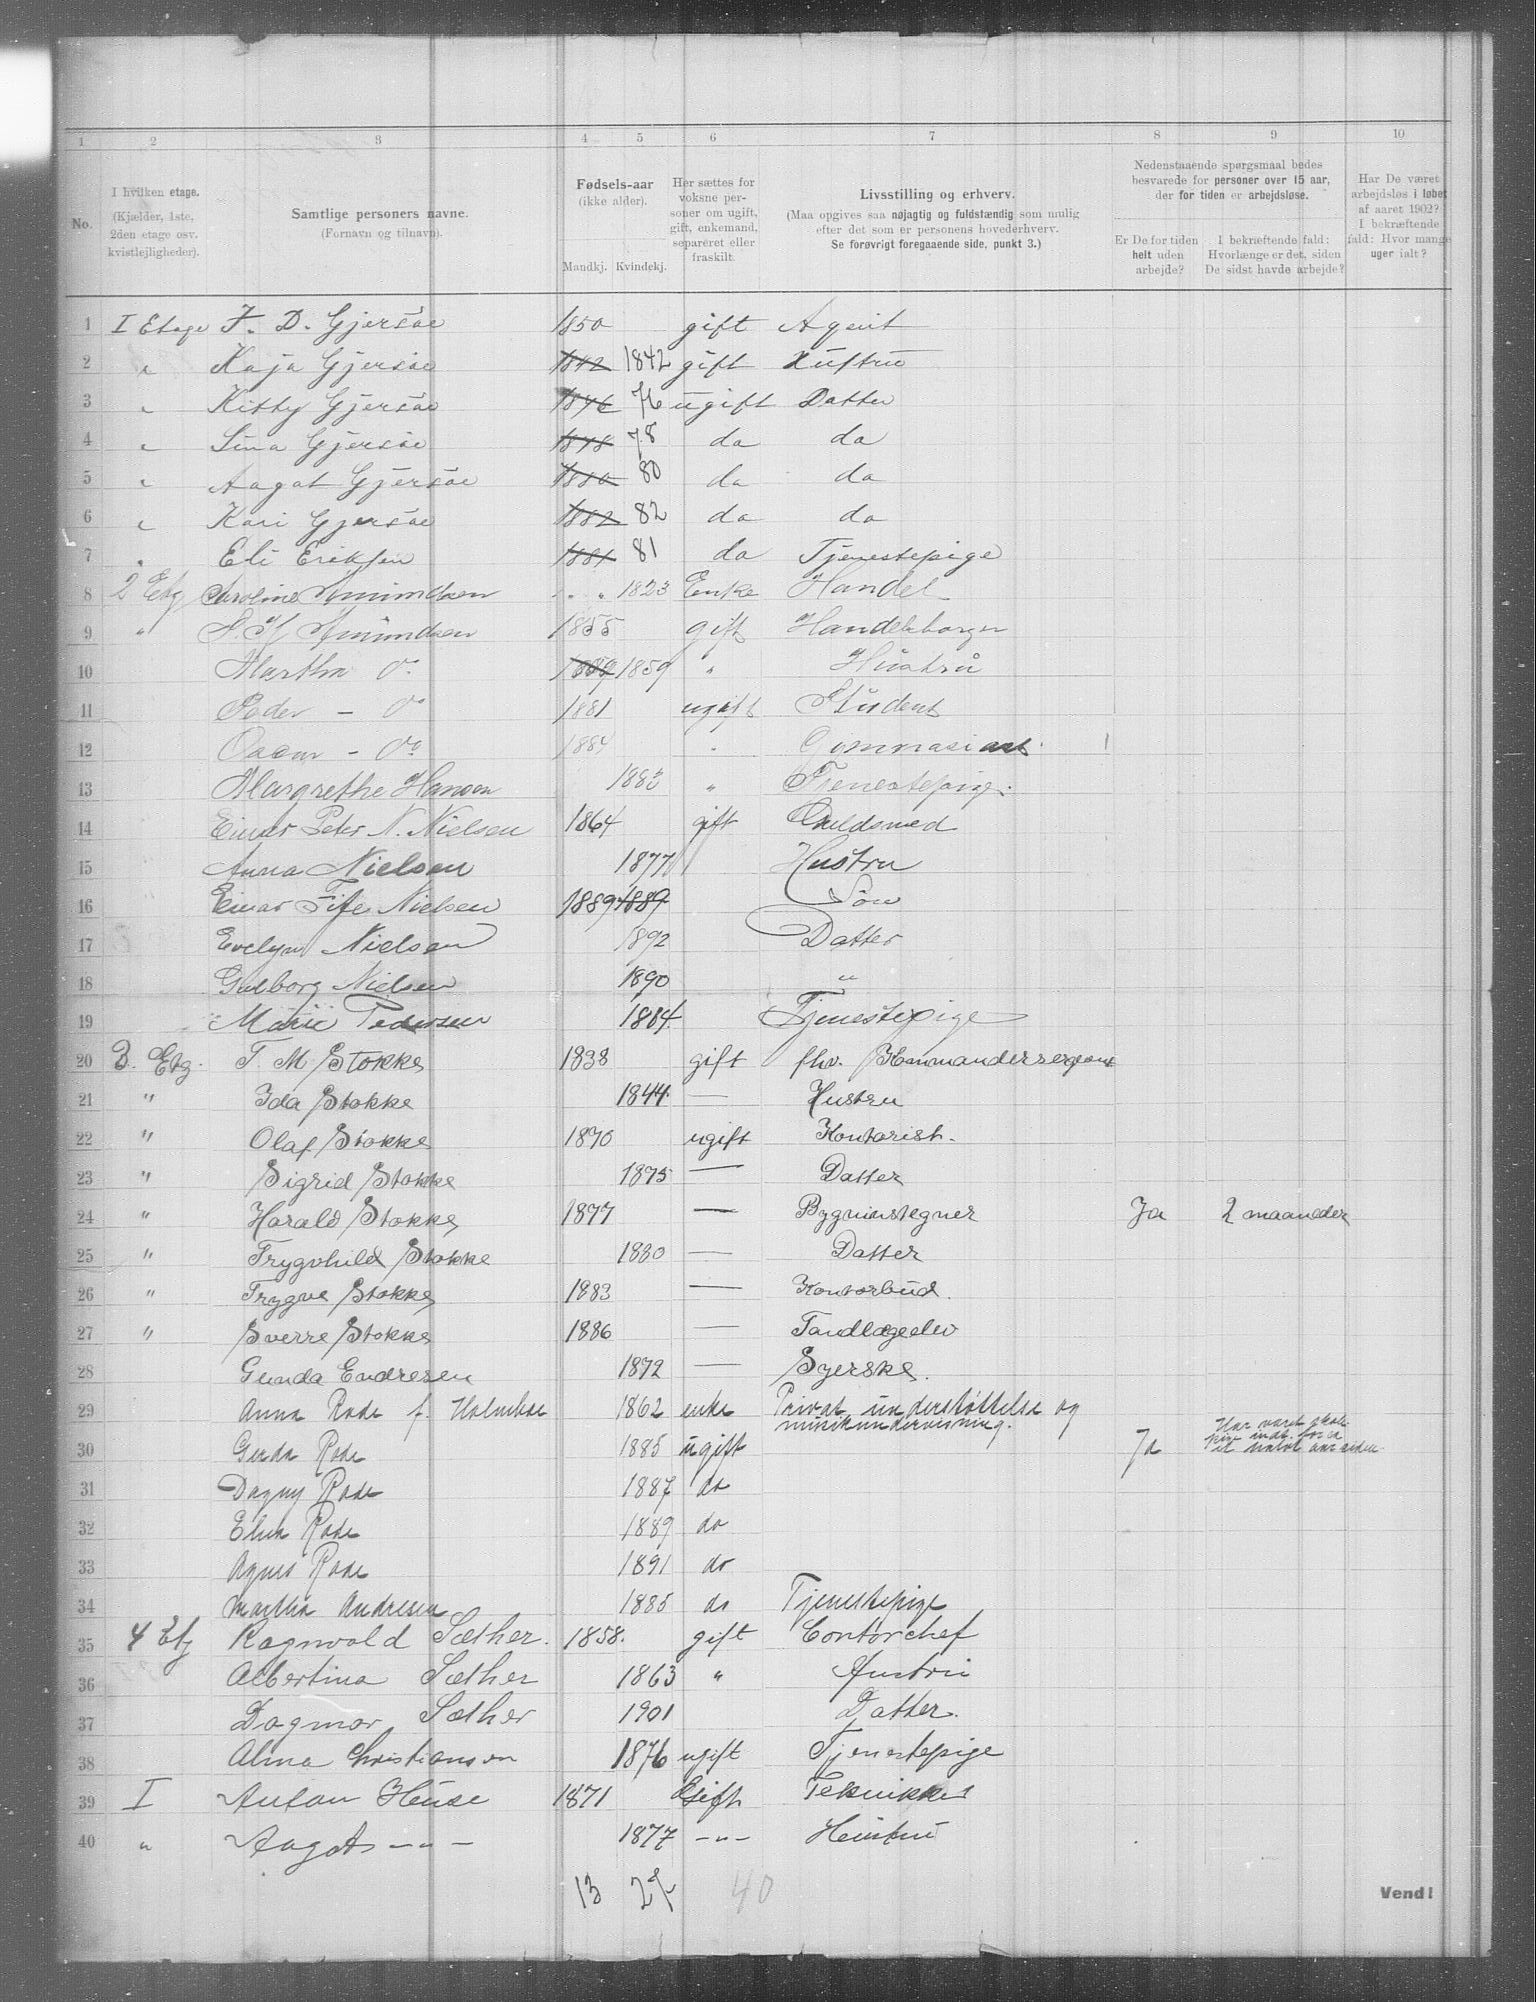 1 2 3 4 5 6 7 8 9 10
No.
I hvilken etage.
(Kjælder, 1ste,
2den etage osv.
kvistlejligheder).
Samtlige personers navne.
(Fornavn og tilnavn).
Fødsels-aar
(ikke alder).
Mandkj. Kvindekj.
Her sættes for
voksne per-
soner om ugift,
gift, enkemand,
separeret eller
fraskilt.
Livsstilling og erhverv.
(Maa opgives saa nøjagtig og fuldstændig som mulig
efter det som er personens hovederhverv.
Se forøvrigt foregaaende side, punkt 3.)
Nedenstaaende spørgsmaal bedes
besvarede for personer over 15 aar,
der for tiden er arbejdsløse.
Er De for tiden
helt uden
arbejde?
I bekræftende fald:
Hvorlænge er det, siden
De sidst havde arbejde?
Har De været
arbejdsløs i løbet
af aaret 1902?
I bekræftende
fald: Hvor mange
uger ialt?
1 I Etage F. D. Gjersøe 1850 gift Agent
2 " Kaja Gjersøe 1842 1842 gift Hustru
3 " Kitty Gjersøe 1876 76 ugift Datter
4 " Lina Gjersøe 1878 78 do do
5 " Aagot Gjersøe 1880 80 do do
6 " Kari Gjersøe 1882 82 do do
7 " Eli Eriksen 1881 81 do Tjenestepige
8 2 Etg Caroline Amundsen " " 1823 Enke Handel
9 " Amundsen 1855 gift Handelsborger
10 Martha Do 1859 1859 " Hustru
11 Peder - Do 1881 ugift Student
12 Oscar - Do 1884 " Gimnasiast
13 Margrethe Hansen 1883 " Tjenestepige
14 Einar Peter N. Nielsen 1864 gift Guldsmed
15 Anna Nielsen 1877 Hustru
16 Einar Nielsen 1889 1889 Søn
17 Evelyn Nielsen 1892 Datter
18 Gulborg Nielsen 1890 "
19 Marie Pedersen 1884 Tjenestepige
20 3. Etg. T. M. Stokke 1838 gift fhv. Kommandersergeant
21 " Ida Stokke 1844 — Hustru
22 " Olaf Stokke 1870 ugift Kontorist.
23 " Sigrid Stokke 1875 — Datter
24 " Harald Stokke 1877 — Bygninstegner Ja 2 maaneder
25 " Trygvhild Stokke 1880 — Datter
26 " Trygve Stokke 1883 — Kontorbud.
27 " Sverre Stokke 1886 — Tandlægeelev
28 Gunda Endresen 1872 — Syerske.
29 Anna Rode f. Holmboe 1862 enke Privat understøttelse og
musikundervisning.
30 Gerda Rode 1885 ugift Ja Har været skole
pige indt. for ca
et halvt aar siden
31 Dagny Rode 1887 do
32 Elisa Rode 1889 do
33 Agnes Rode 1891 do
34 Martha Andresen 1885 do Tjenestepige
35 4 Etg Ragnvald Sæther. 1858. gift Contorchef
36 Albertina Sæther 1863 " Hustru
37 Dagmar Sæther 1901 Datter.
38 Alma Christiansen 1876 ugift Tjenestepige
39 I Anton 1871 Gift Tekniker
40 " Aagot - " - 1877 - " - Hustru
13 27 40
Vend!